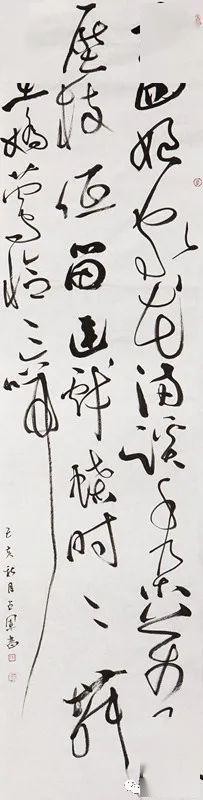 四娘家花满蹊千朵万々
压枝低留连戏蝶时々舞
在娇莺恰々啼
己亥秋月书